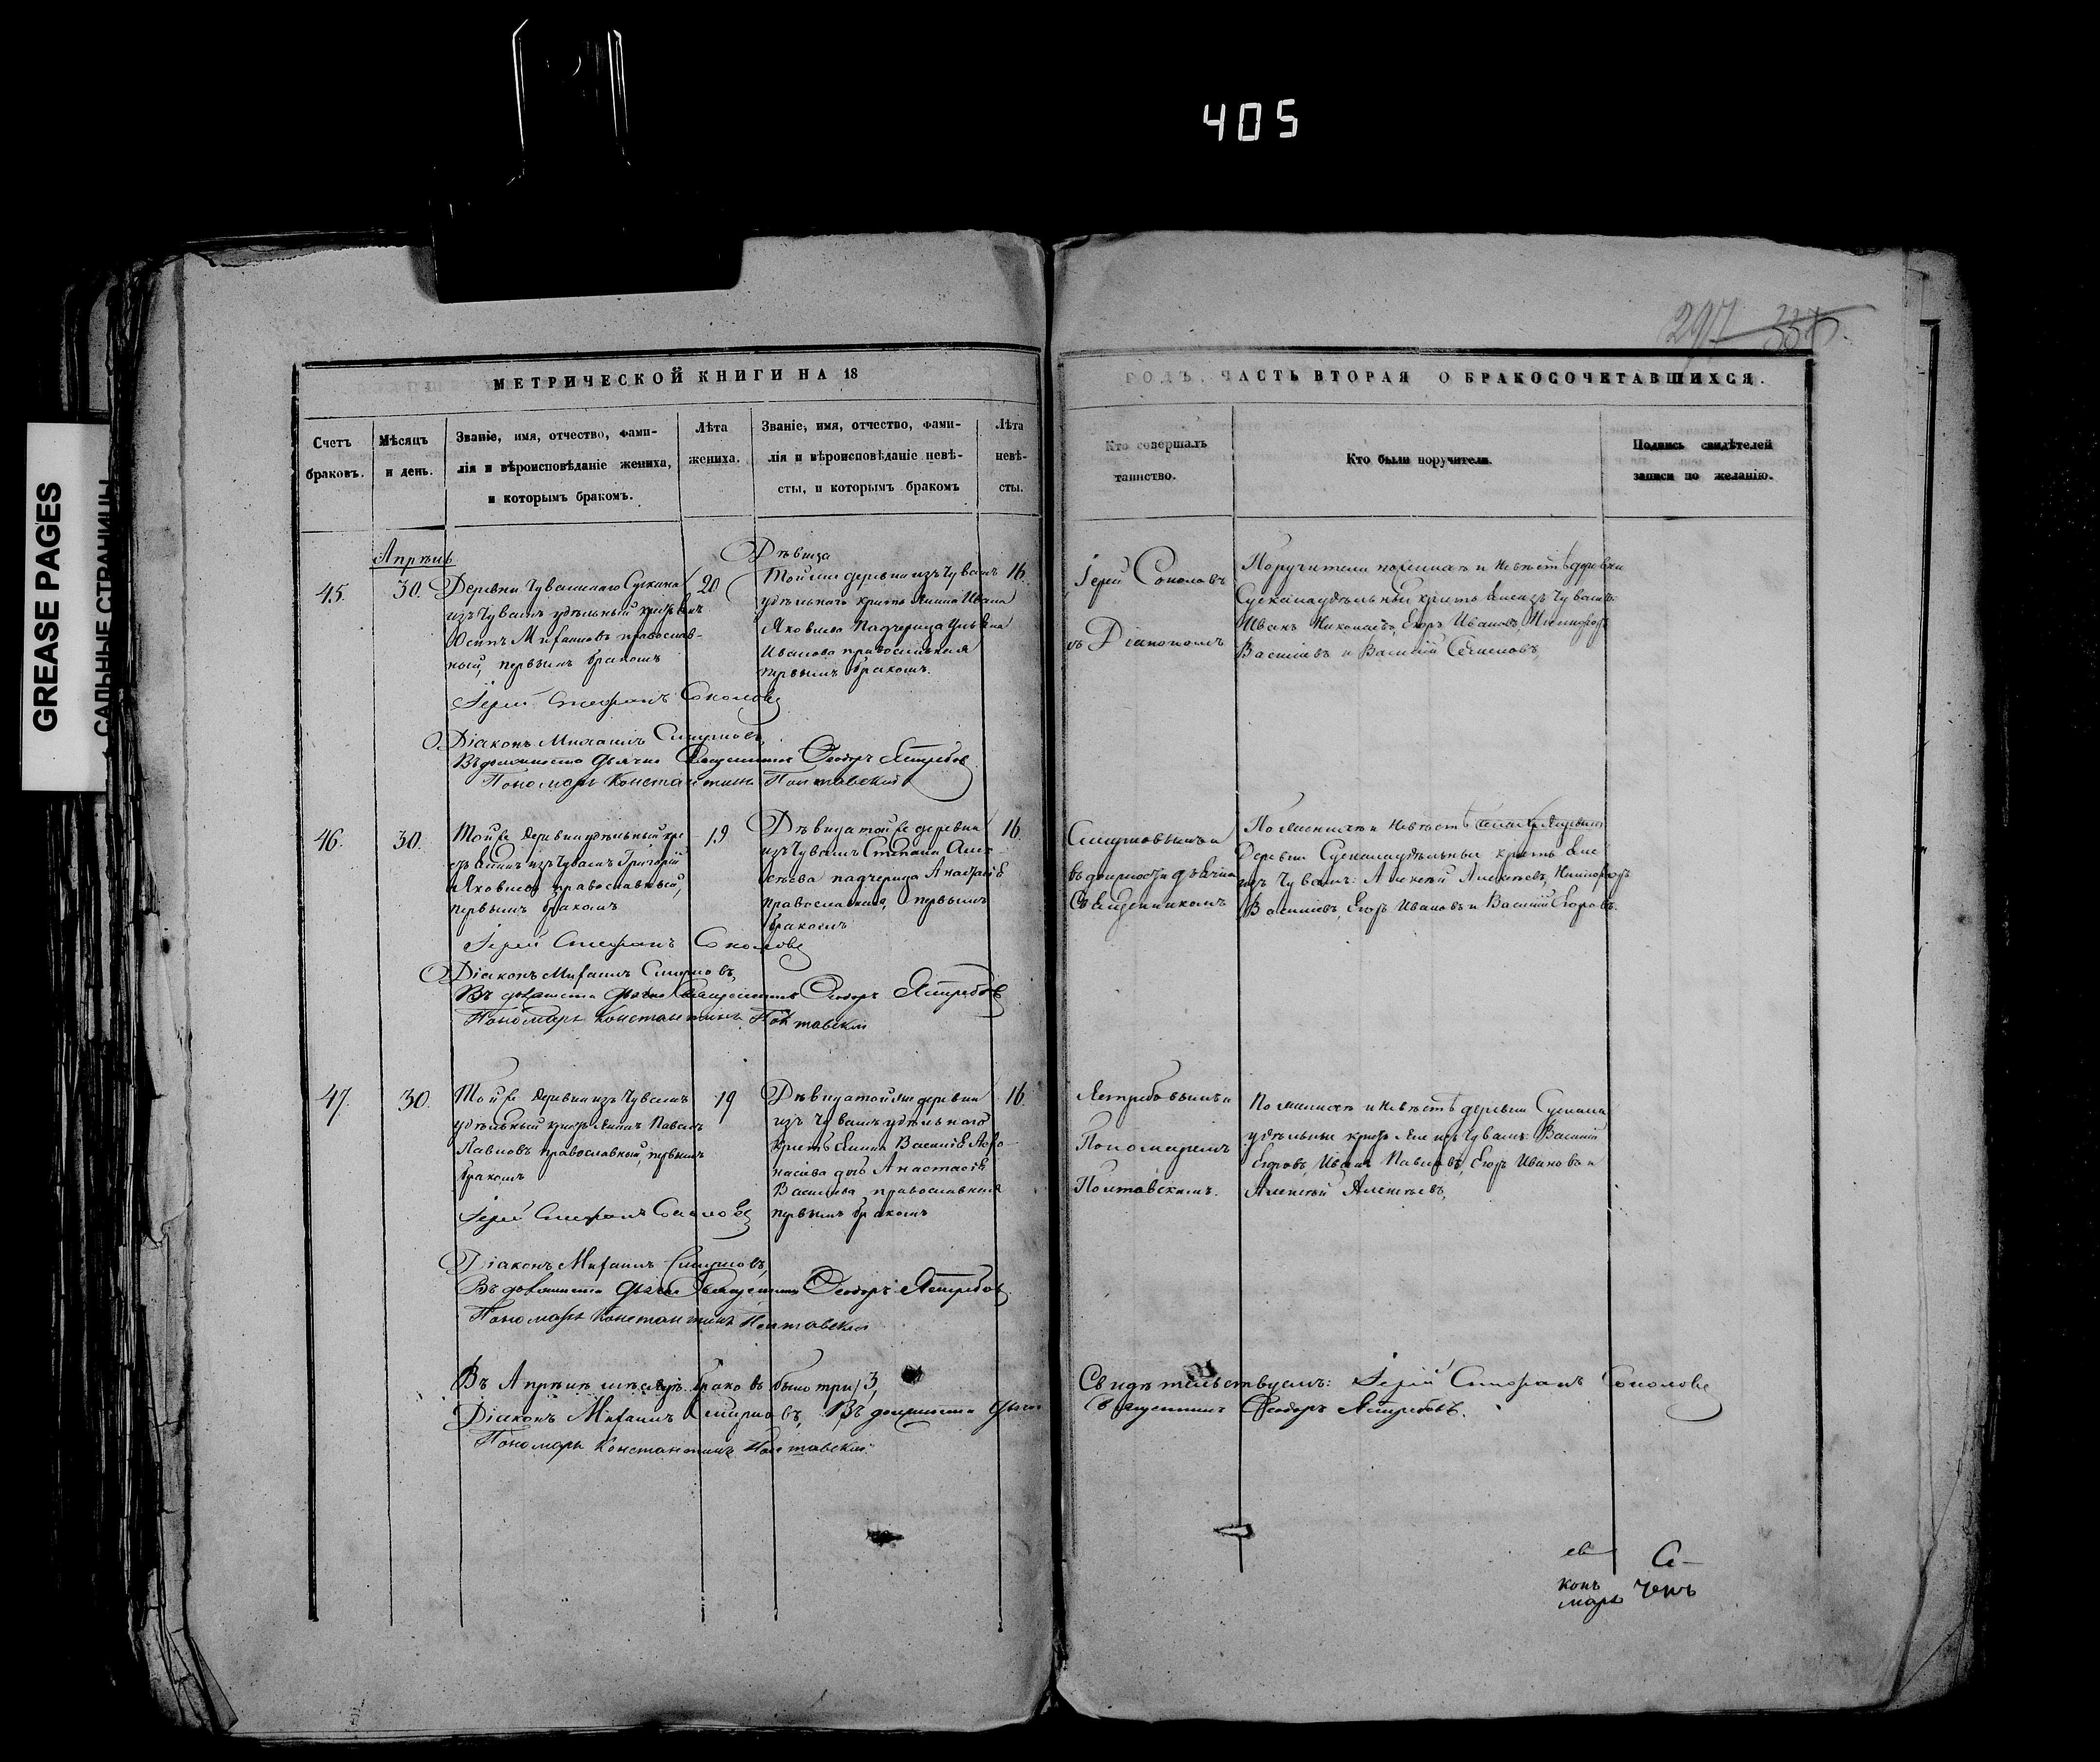 405
GREASE PAGES
САЛЬНЫЕ СТРАНИЦЫ
297 335.
МЕТРИЧЕСКОЙ КНИГИ НА 18
Счетъ браковъ.
Мѣсяцъ и день.
Званіе, имя, отчество, фами-
лія и вѣроисповѣданіе жениха,
и которымъ бракомъ.
Лѣта жениха.
Званіе, имя, отчество, фами-
лія и вѣроисповѣданіе невѣ-
сты, и которымъ бракомъ
Лѣта невѣ-
сты.
ГОДЪ, ЧАСТЬ ВТОРАЯ О БРАКОСОЧЕТАВШИХСЯ.
Кто совершалъ
таинство.
Кто были поручители.
Подпись свидѣтелей
записи по желанію.
Апрѣль
45. 30.
Деревни Чувашскаго Сускана
изъ Чувашъ удѣльный
Осипъ Михаиловъ православ-
ный, первымъ бракомъ
20
Дѣвица
Той же деревни изъ Чувашъ
удѣльнаго Ивана
Яковлева Падчерица
Иванова православная
первымъ бракомъ.
16.
Іерей Стефанъ Соколовъ
Діаконъ Михаилъ Смирновъ,
Въ должности дьячка Священникъ Ѳеодоръ Ястребовъ
Пономарь Константинъ Полтавскій
Іерей Соколовъ
съ Діакономъ
Поручители по женихѣ и невѣстѣ деревни
Сускана удѣльные изъ Чувашъ:
Иванъ Николаевъ, Егоръ Ивановъ, Никифоръ
Васильевъ и Василій Семеновъ,
46. 30.
Той же деревни удѣльный кре-
изъ Чувашъ Григорій
Яковлевъ православный,
первымъ бракомъ
19
Дѣвица той же деревни
изъ Чувашъ Степана Алек-
сѣева падчерица Анастасія
православная, первымъ
бракомъ
16.
Іерей Стефанъ Соколовъ
Діаконъ Михаилъ Смирновъ,
Въ должности дьячка Священникъ Ѳеодоръ Ястребовъ
Пономарь Константинъ Полтавскій
Смирновымъ и
въ должности дьячка
Священникомъ
По женихѣ и невѣстѣ
Деревни Сускана удѣльные
изъ Чувашъ: Алексѣй Алексѣевъ, Никифоръ
Васильевъ, Егоръ Ивановъ и Василій Егоровъ.
47. 30.
Той же деревни изъ Чувашъ
удѣльный Павелъ
Павловъ православный, первымъ
бракомъ
19
Дѣвица той же деревни
изъ Чувашъ удѣльнаго
Василія Афо-
насьева дочь Анастасія
Васильева православная
первымъ бракомъ
16.
Іерей Стефанъ Соколовъ
Діаконъ Михаилъ Смирновъ,
Въ должности дьячка Священникъ Ѳеодоръ Ястребовъ
Пономарь Константинъ Полтавскій
Ястребовымъ и
Пономаремъ
Полтавскимъ.
По женихѣ и невѣстѣ деревни Сускана
удѣльные изъ Чувашъ: Василій
Егоровъ, Иванъ Павловъ, Егоръ Ивановъ и
Алексѣй Алексѣевъ,
Въ Апрѣлѣ мѣсяцѣ браковъ было три, 3,
Діаконъ Михаилъ Смирновъ, Въ должности дьячка
Пономарь Константинъ Полтавскій
Свидѣтельствуемъ: Іерей Стефанъ Соколовъ
Священникъ Ѳеодоръ Ястребовъ.
конъ
марь